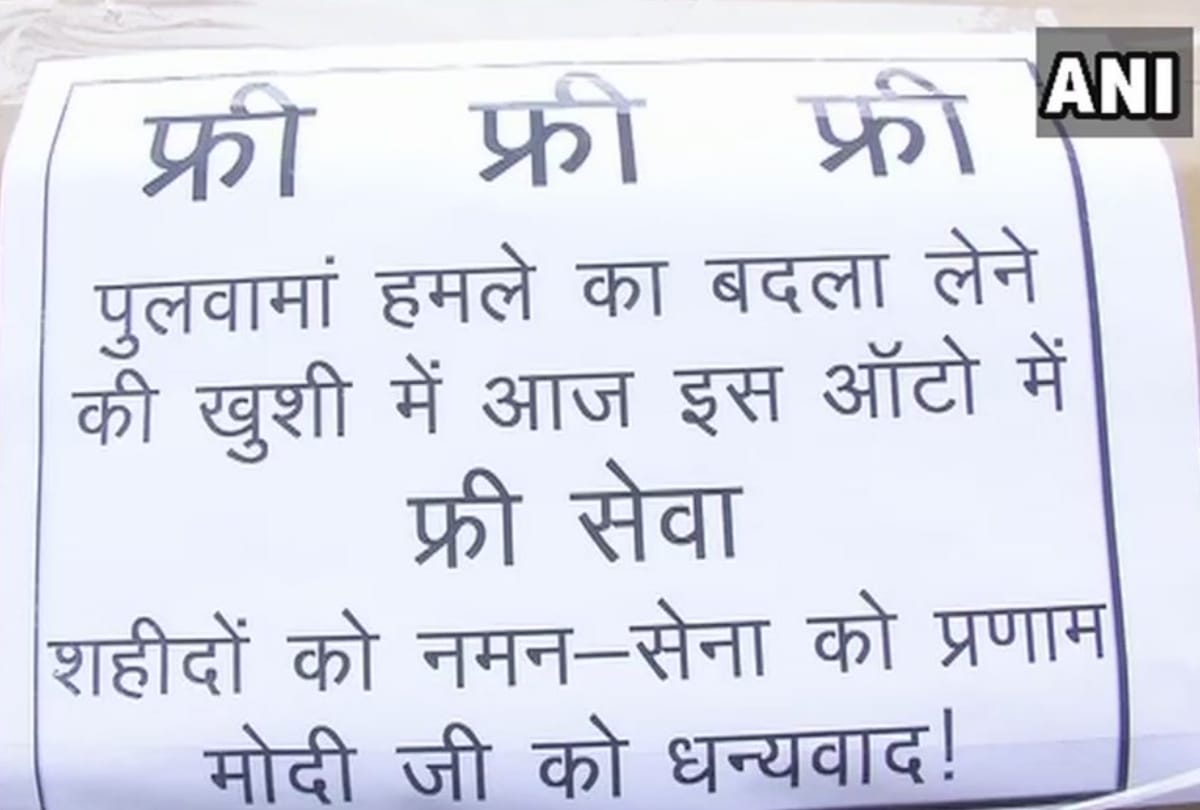 ANI
फ्री फ्री फ्री
पुलवामां हमले का बदला लेने
की खुशी में आज इस ऑटो में
फ्री सेवा
शहीदों को नमन–सेना को प्रणाम
मोदी जी को धन्यवाद!